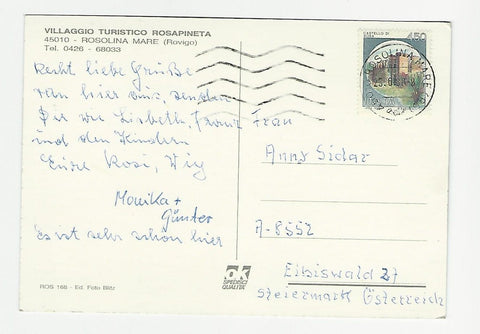 VILLAGGIO TURISTICO ROSAPINETA
45010 - ROSOLINA MARE (Rovigo)
Tel. 0426 - 68033
Recht liebe Grüße
von hier aus, senden
Dir wie Lisbeth, Franz
und den Kindern
Eure Rosi,
Monika +
Günter
Es ist sehr schön hier
ROS 168 - Ed. Foto Blitz
CASTELLO DI
450
ROSOLINA MARE
Frau
Anny Sidar
A-8552
Eibiswald 27
Steiermark Österreich
ok
SPEDIRCI
QUALITA'